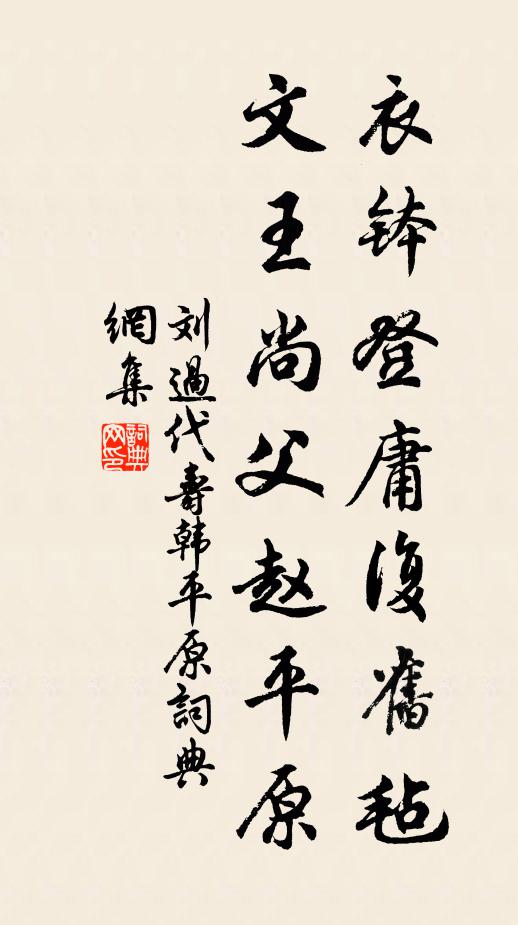 衣钵登庸復舊毡
文王尚父赵平原
刘過代壽韩平原詞典
網集
詞典
网印